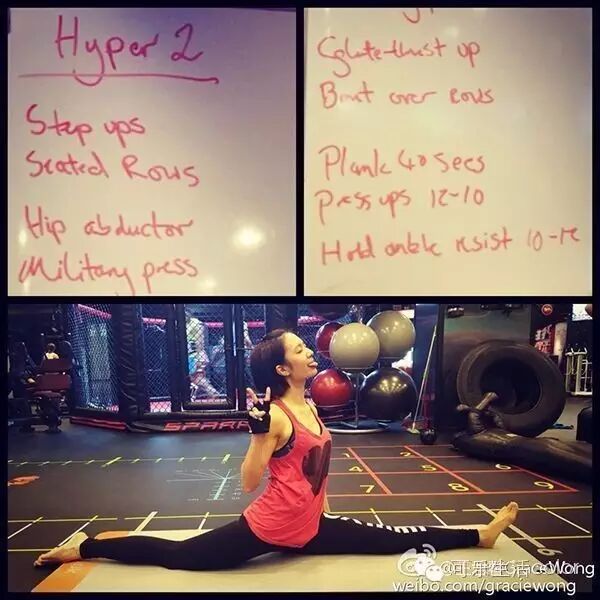 Hyper 2
Step ups
Seated Rows
Hip abductor
Military press
Glute thrust up
Bent over rows
Plank 40 secs
Press ups 12-10
Hold ankle resist 10-12
6
9
weibo.com/graciewong